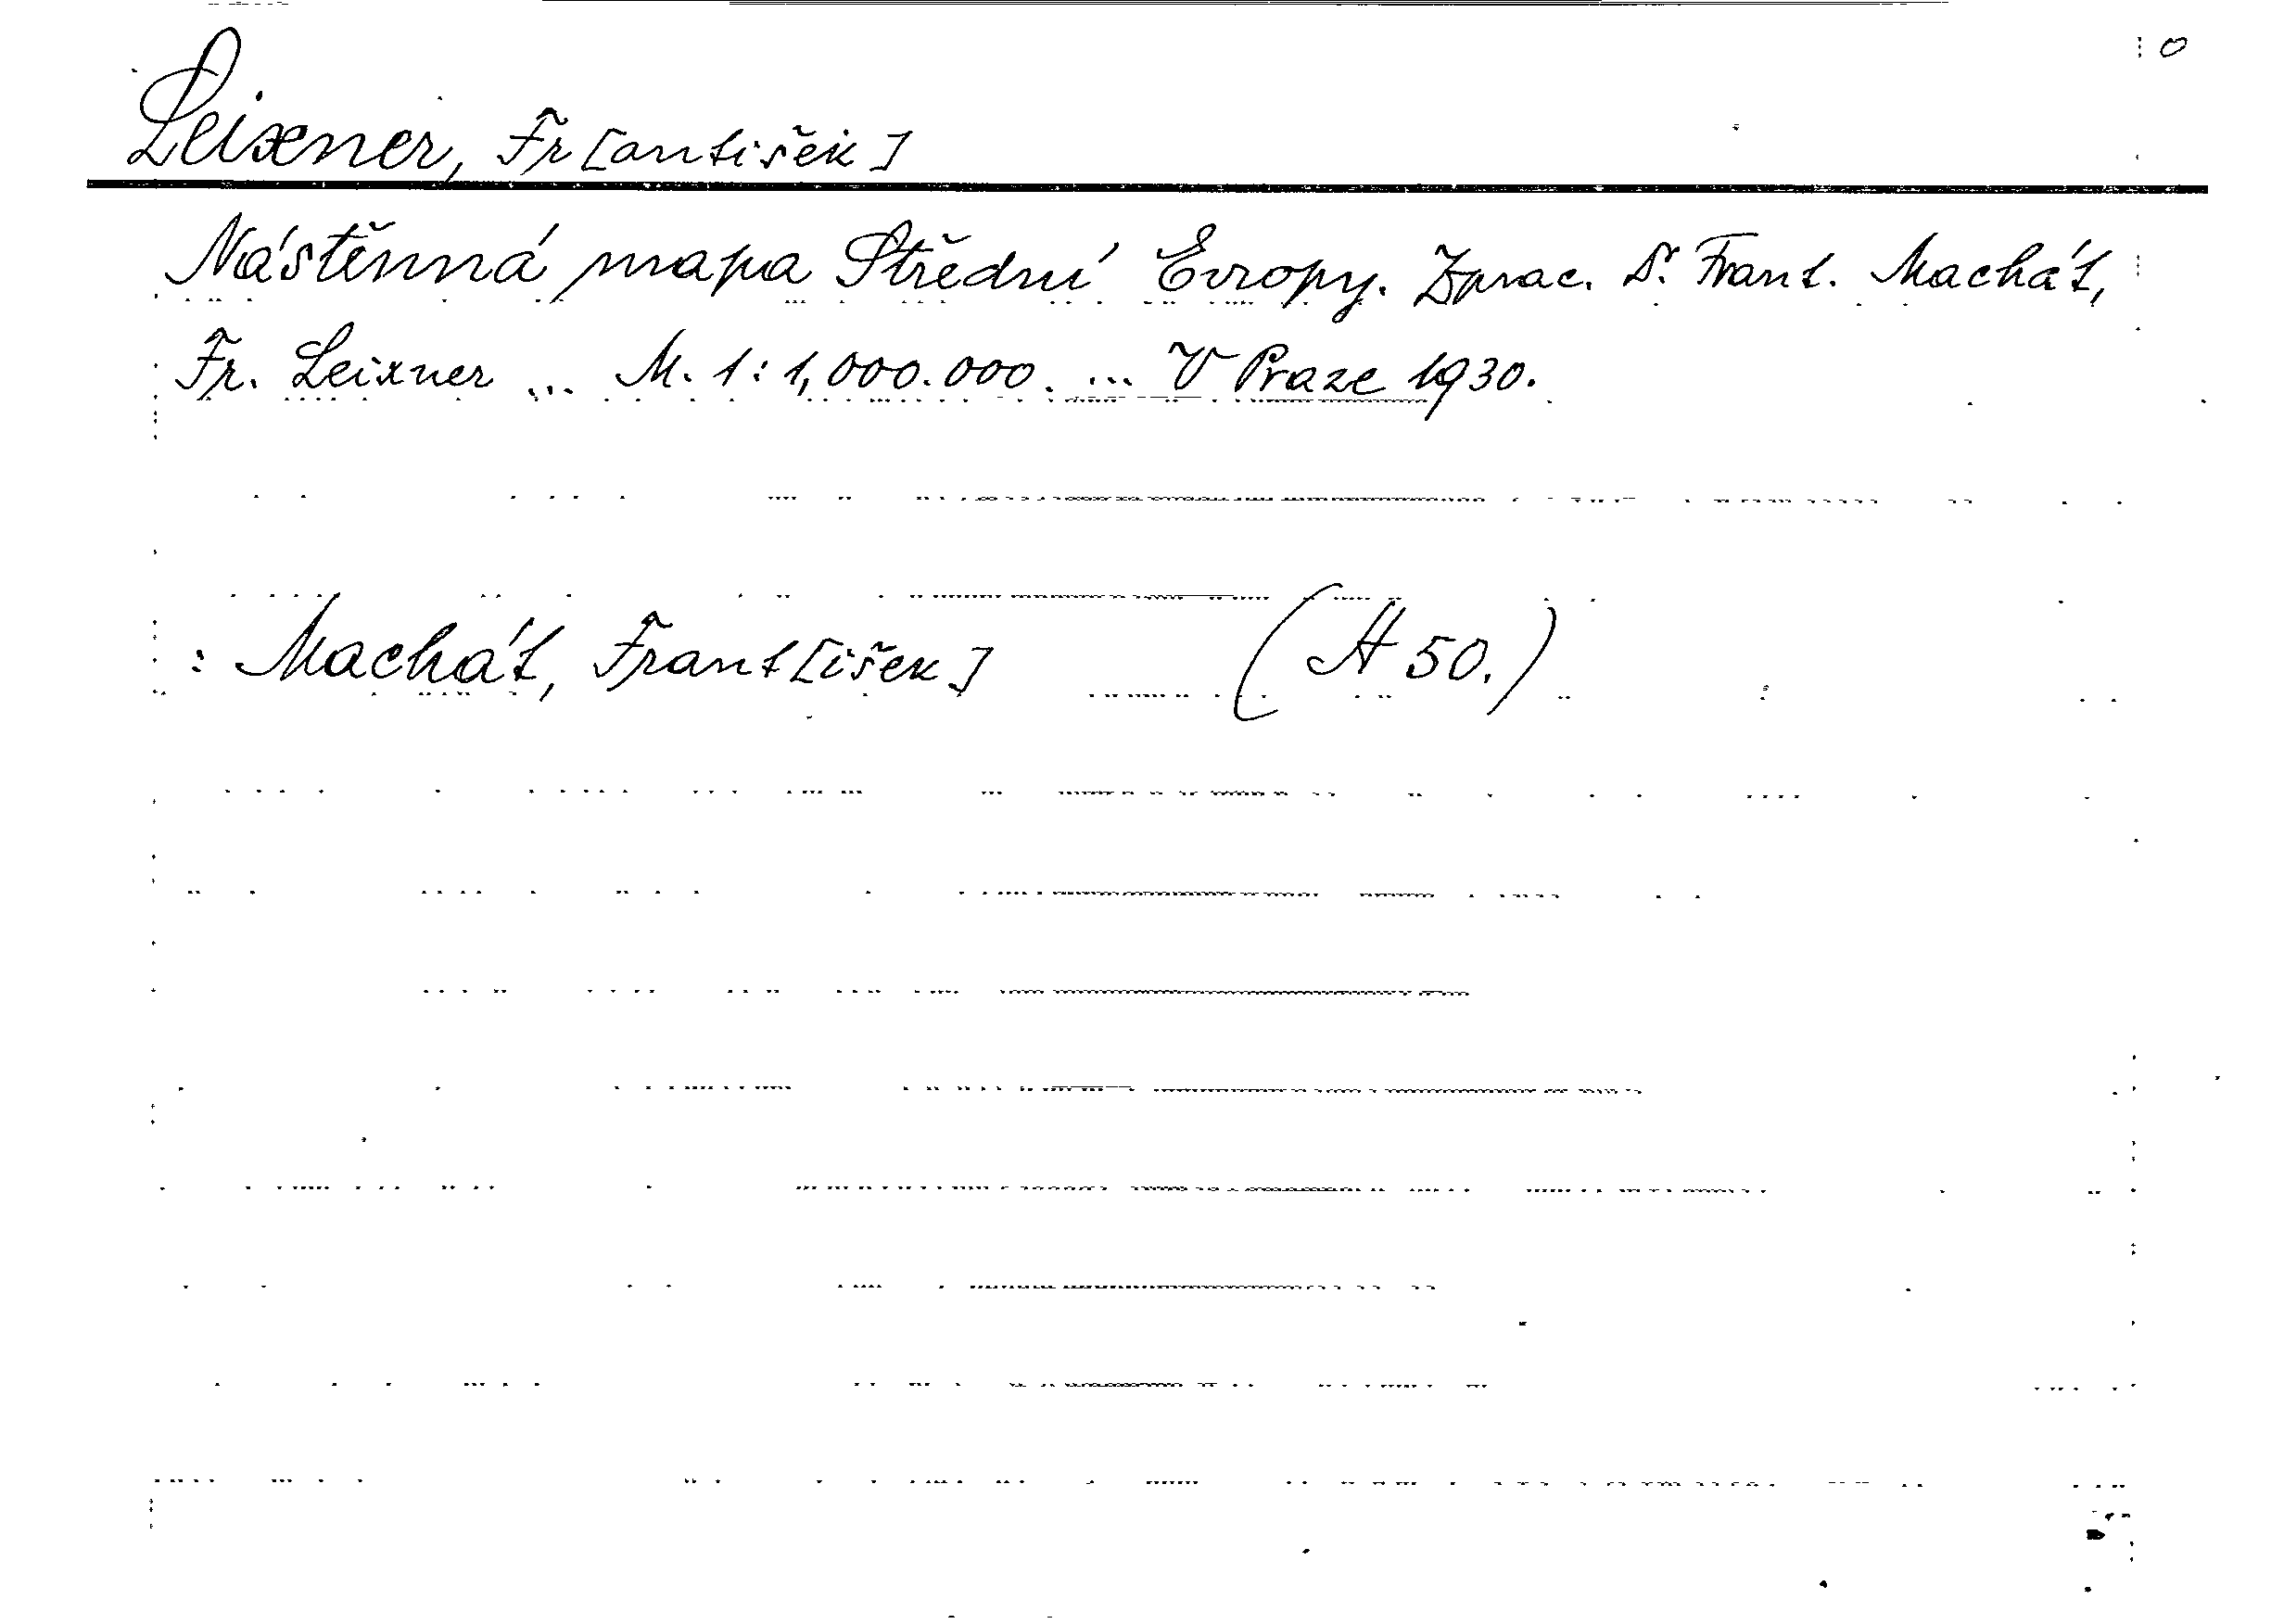 0
Leixner, Fr[antišek]
Nástěnná mapa Střední Evropy. Zprac. Dr. Frant. Machát,
Fr. Leixner ... M. 1:1,000.000. ... V Praze 1930.
: Machát, Frant[išek] (A 50.)